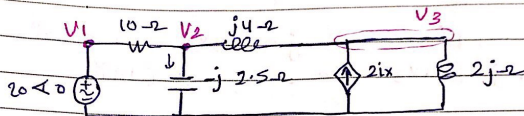 V1 10-Ω V2 j4-Ω V3
20∠0 -j 2.5Ω 2ix 2j-Ω